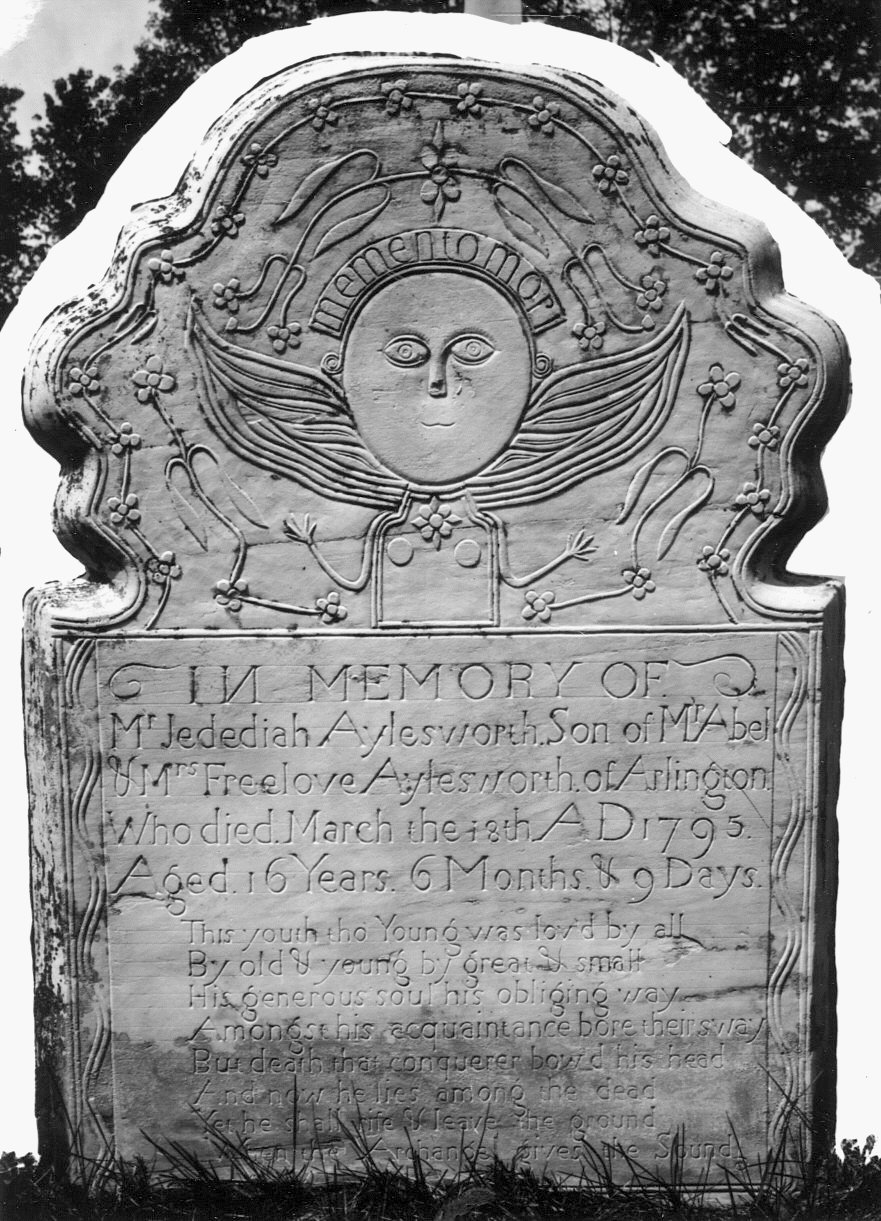 memento mori
IN MEMORY OF
Mr Jedediah Aylesworth. Son of Mr Abel
& Mrs Freelove Aylesworth. of Arlington.
Who died. March the 18th. A.D 1795.
Aged. 16 Years. 6 Months. & 9 Days.
This youth tho Young was lov'd by all
By old & young by great & small
His generous soul his obliging way
Amongst his acquaintance bore their sway
But death that conquerer bow'd his head
And now he lies among the dead
Yet he shall rise & leave the ground
When the Archangel gives the Sound.